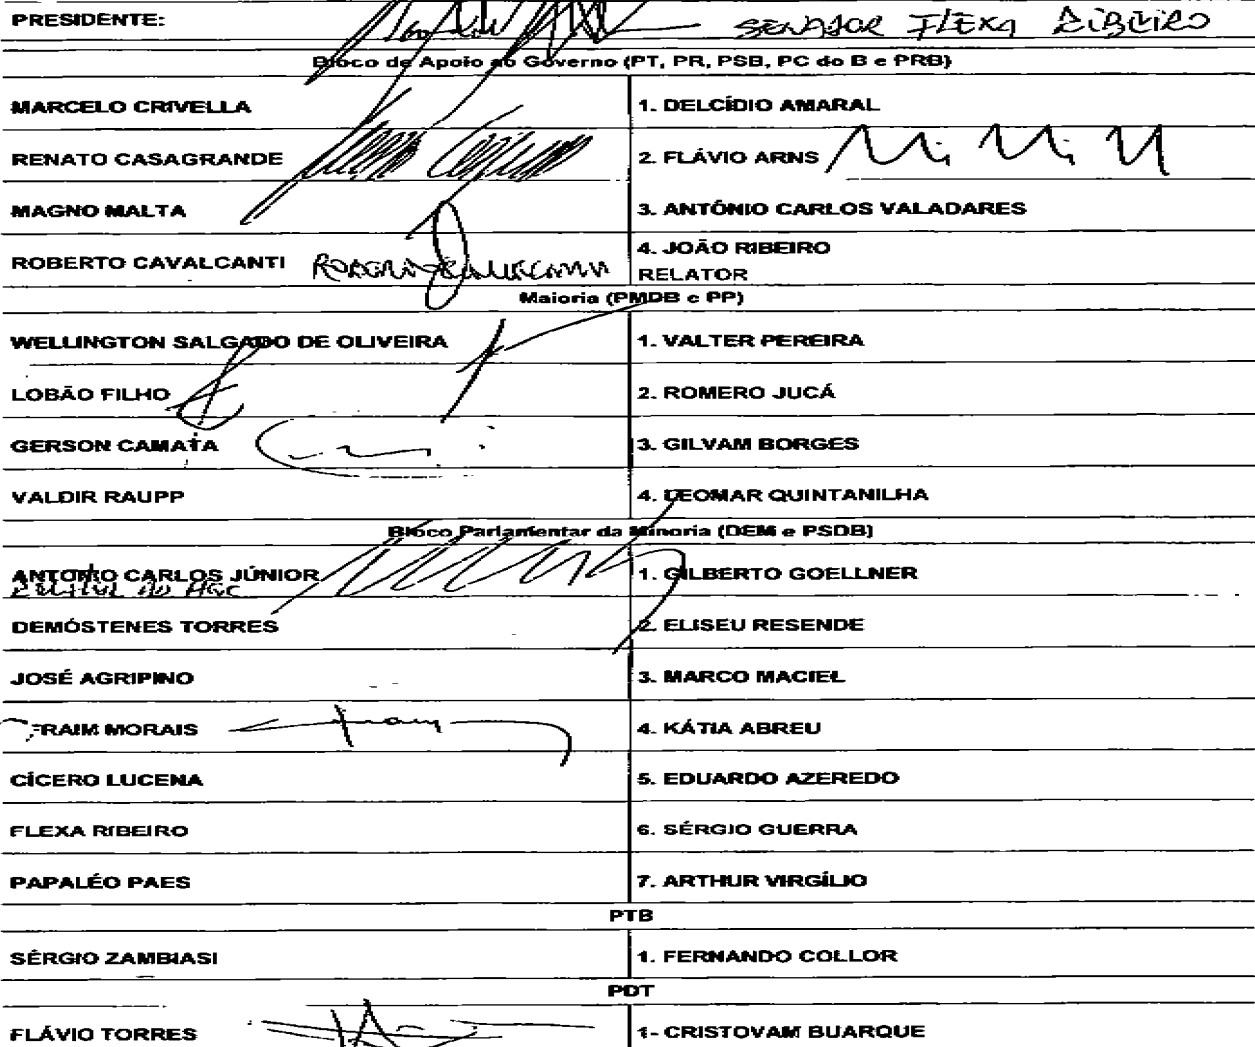 PRESIDENTE: SENADOR FLEXA RIBEIRO
Bloco de Apoio ao Governo (PT, PR, PSB, PC do B e PRB)
MARCELO CRIVELLA 1. DELCÍDIO AMARAL
RENATO CASAGRANDE 2. FLÁVIO ARNS
MAGNO MALTA 3. ANTÔNIO CARLOS VALADARES
ROBERTO CAVALCANTI 4. JOÃO RIBEIRO
RELATOR
Maioria (PMDB e PP)
WELLINGTON SALGADO DE OLIVEIRA 1. VALTER PEREIRA
LOBÃO FILHO 2. ROMERO JUCÁ
GERSON CAMATA 3. GILVAM BORGES
VALDIR RAUPP 4. LEOMAR QUINTANILHA
Bloco Parlamentar da Minoria (DEM e PSDB)
ANTONIO CARLOS JÚNIOR 1. GILBERTO GOELLNER
DEMÓSTENES TORRES 2. ELISEU RESENDE
JOSÉ AGRIPINO 3. MARCO MACIEL
FRAIM MORAIS 4. KÁTIA ABREU
CÍCERO LUCENA 5. EDUARDO AZEREDO
FLEXA RIBEIRO 6. SÉRGIO GUERRA
PAPALÉO PAES 7. ARTHUR VIRGÍLIO
PTB
SÉRGIO ZAMBIASI 1. FERNANDO COLLOR
PDT
FLÁVIO TORRES 1- CRISTOVAM BUARQUE